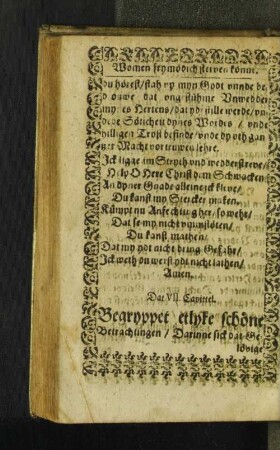 Women sey mödich sterven könne.
Du hörest / stah up myn Godt unnde be
dowe dat ungestühme Unwedder
mynes Herten / dat ydt stille werde / un
dyne Söticheit dynes Wordes / unde
hilligen Trost befinde / unde up dy gan
tzer Macht vortruwen lehre.
Ick ligge im Stryth und wedderstreve /
Help O Here Christ dem Schwacken
An dyner Gnade alleine ick kleve /
Du kanst my Stercker maken.
Kümpt nu Anfechting her / so wehr /
Dat se my nicht ummstöten /
Du kanst mathen /
Dat my ydt nicht bring Gefahr /
Ick weth du werst ydt nicht lathen /
Amen.
Dat VII. Capittel.
Begryppet etlyke schöne
Betrachtingen / Darinne sick dat Ge
lövige